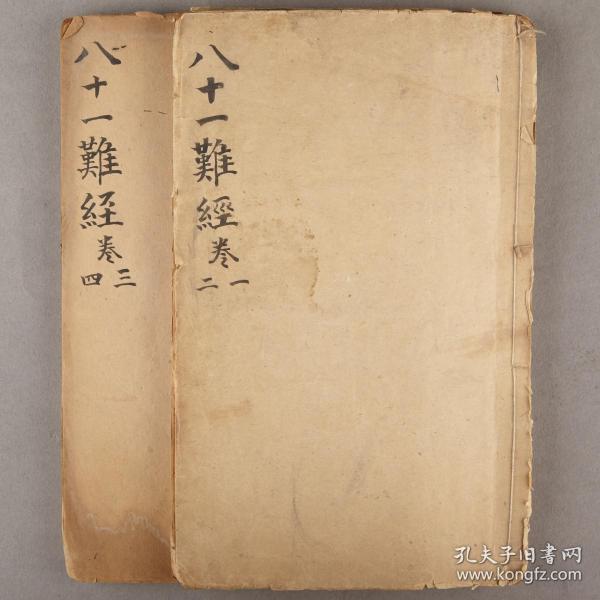 八十一難經
卷
一
二
八十一難経
卷
三
四
孔夫子旧书网
www.kongfz.com